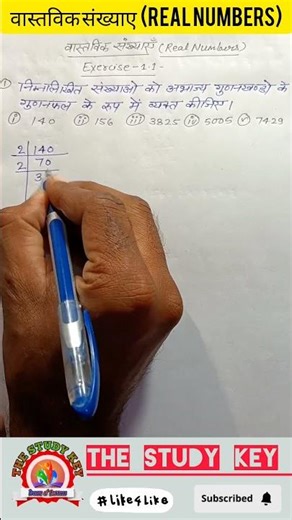 वास्तविक संख्याए (REAL NUMBERS)
वास्तविक संख्याएँ (Real Numbers)
Exercise-1.1-
① निम्नलिखित संख्याओं को अभाज्य गुणनखण्डो के
गुणनफल के रूप में व्यक्त कीजिए।
ⓘ 140 ⓘⓘ 156 ⓘⓘⓘ 3825 ⓘⓥ 5005 ⓥ 7429
2 | 140
2 | 70
3
THE STUDY KEY
THE STUDY KEY
#Like4Like
Subscribed